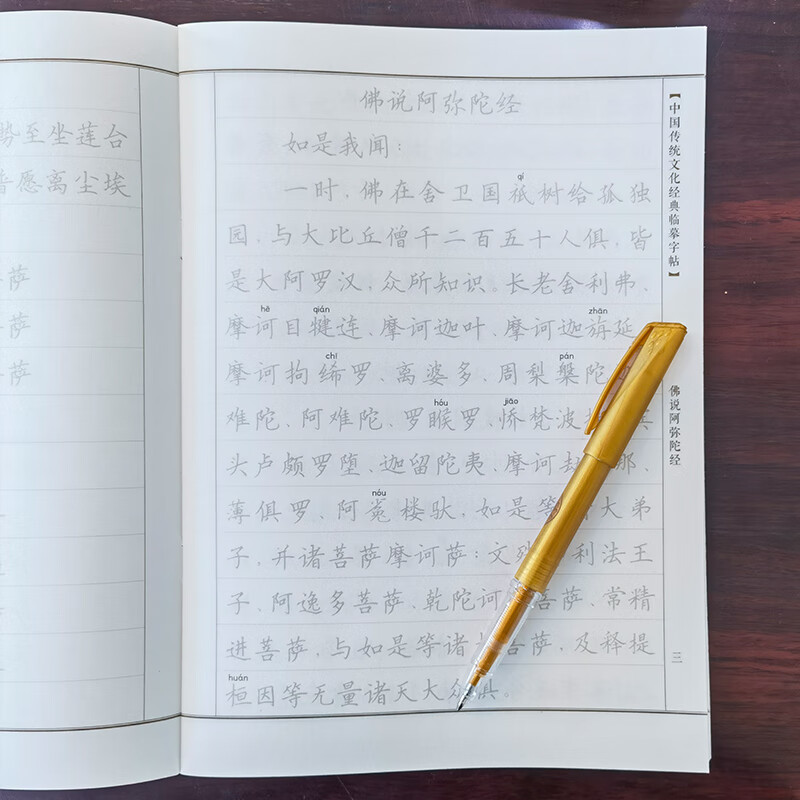 势至坐莲台
普愿离尘埃
萨
萨
萨
佛说阿弥陀经
如是我闻：
qí
一时，佛在舍卫国祇树给孤独
园，与大比丘僧千二百五十人俱，皆
是大阿罗汉，众所知识。长老舍利弗、
hē qián zhān
摩诃目犍连、摩诃迦叶、摩诃迦旃延
chī pán
摩诃拘𫄨罗、离婆多、周梨槃陀
hóu jiāo
难陀、阿难陀、罗睺罗、㤭梵波
头卢颇罗堕、迦留陀夷、摩诃劫 那、
nóu
薄俱罗、阿㝹楼驮，如是等 大弟
子，并诸菩萨摩诃萨：文殊 利法王
子、阿逸多菩萨、乾陀诃 菩萨、常精
进菩萨，与如是等诸 菩萨，及释提
huán
桓因等无量诸天大众俱。
【中国传统文化经典临摹字帖】
佛说阿弥陀经
三